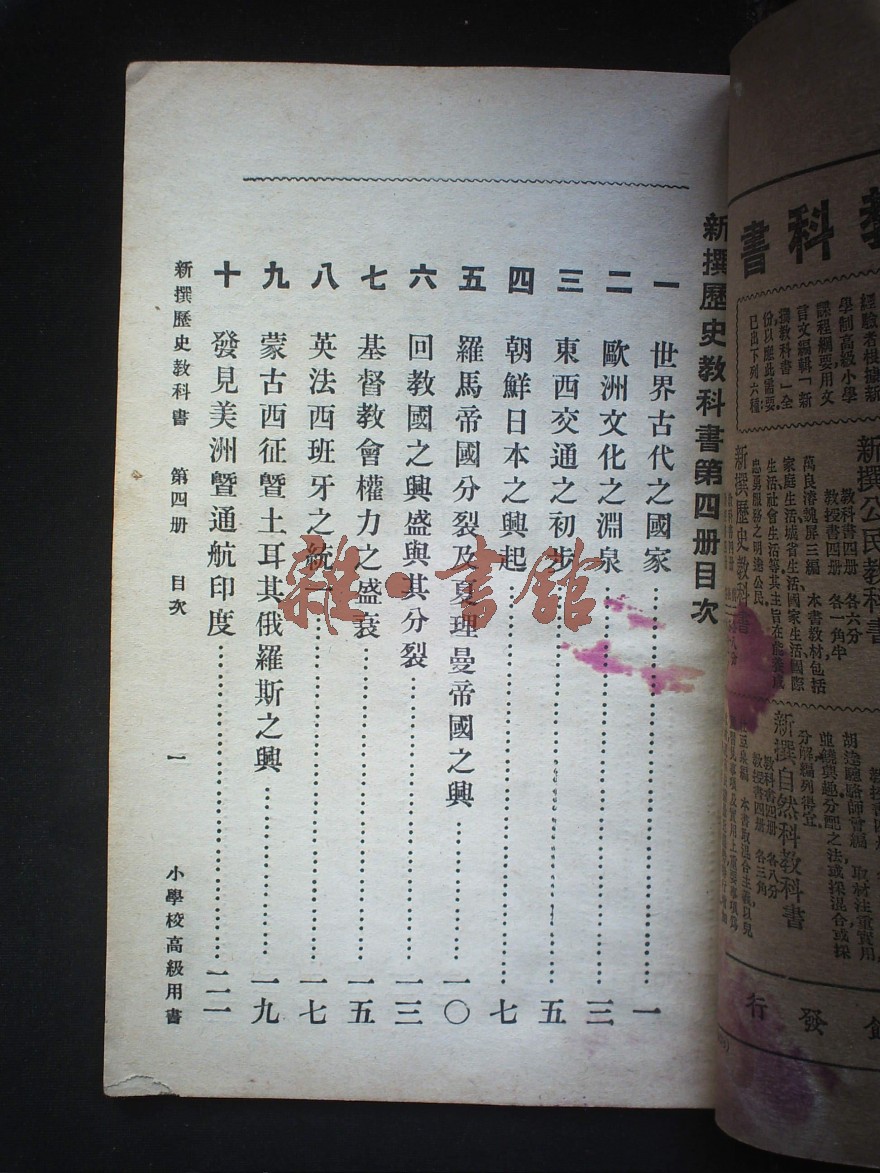 新撰歷史教科書第四册目次
一 世界古代之國家 一
二 歐洲文化之淵泉 三
三 東西交通之初步 五
四 朝鮮日本之興起 七
五 羅馬帝國分裂及夏理曼帝國之興 一〇
六 回教國之興盛與其分裂 一三
七 基督教會權力之盛衰 一五
八 英法西班牙之統一 一七
九 蒙古西征暨土耳其俄羅斯之興 一九
十 發見美洲暨通航印度 二一
新撰歷史教科書 第四册 目次 一 小學校高級用書
雜·書館
教科書
經驗者根據新
學制高級小學
課程綱要用文
言文編輯「新
撰教科書」全
份以應此需要,
已出下列六種:
新撰公民教科書
教科書四册 各六分
教授書四册 各一角半
萬良濬魏屏三編 本書教材包括
家庭生活、城省生活、國家生活、國際
生活、社會生活等,其主旨在能養成
忠勇服務之明達公民.
新撰歷史教科書
胡達聰
編,取材注重實用,
並饒興趣,分配之法或採混合或採
分解,編列得宜.
新撰自然科教科書
教科書四册 各八分
教授書四册 各三角
編 本書取混合主義,以兒
發行